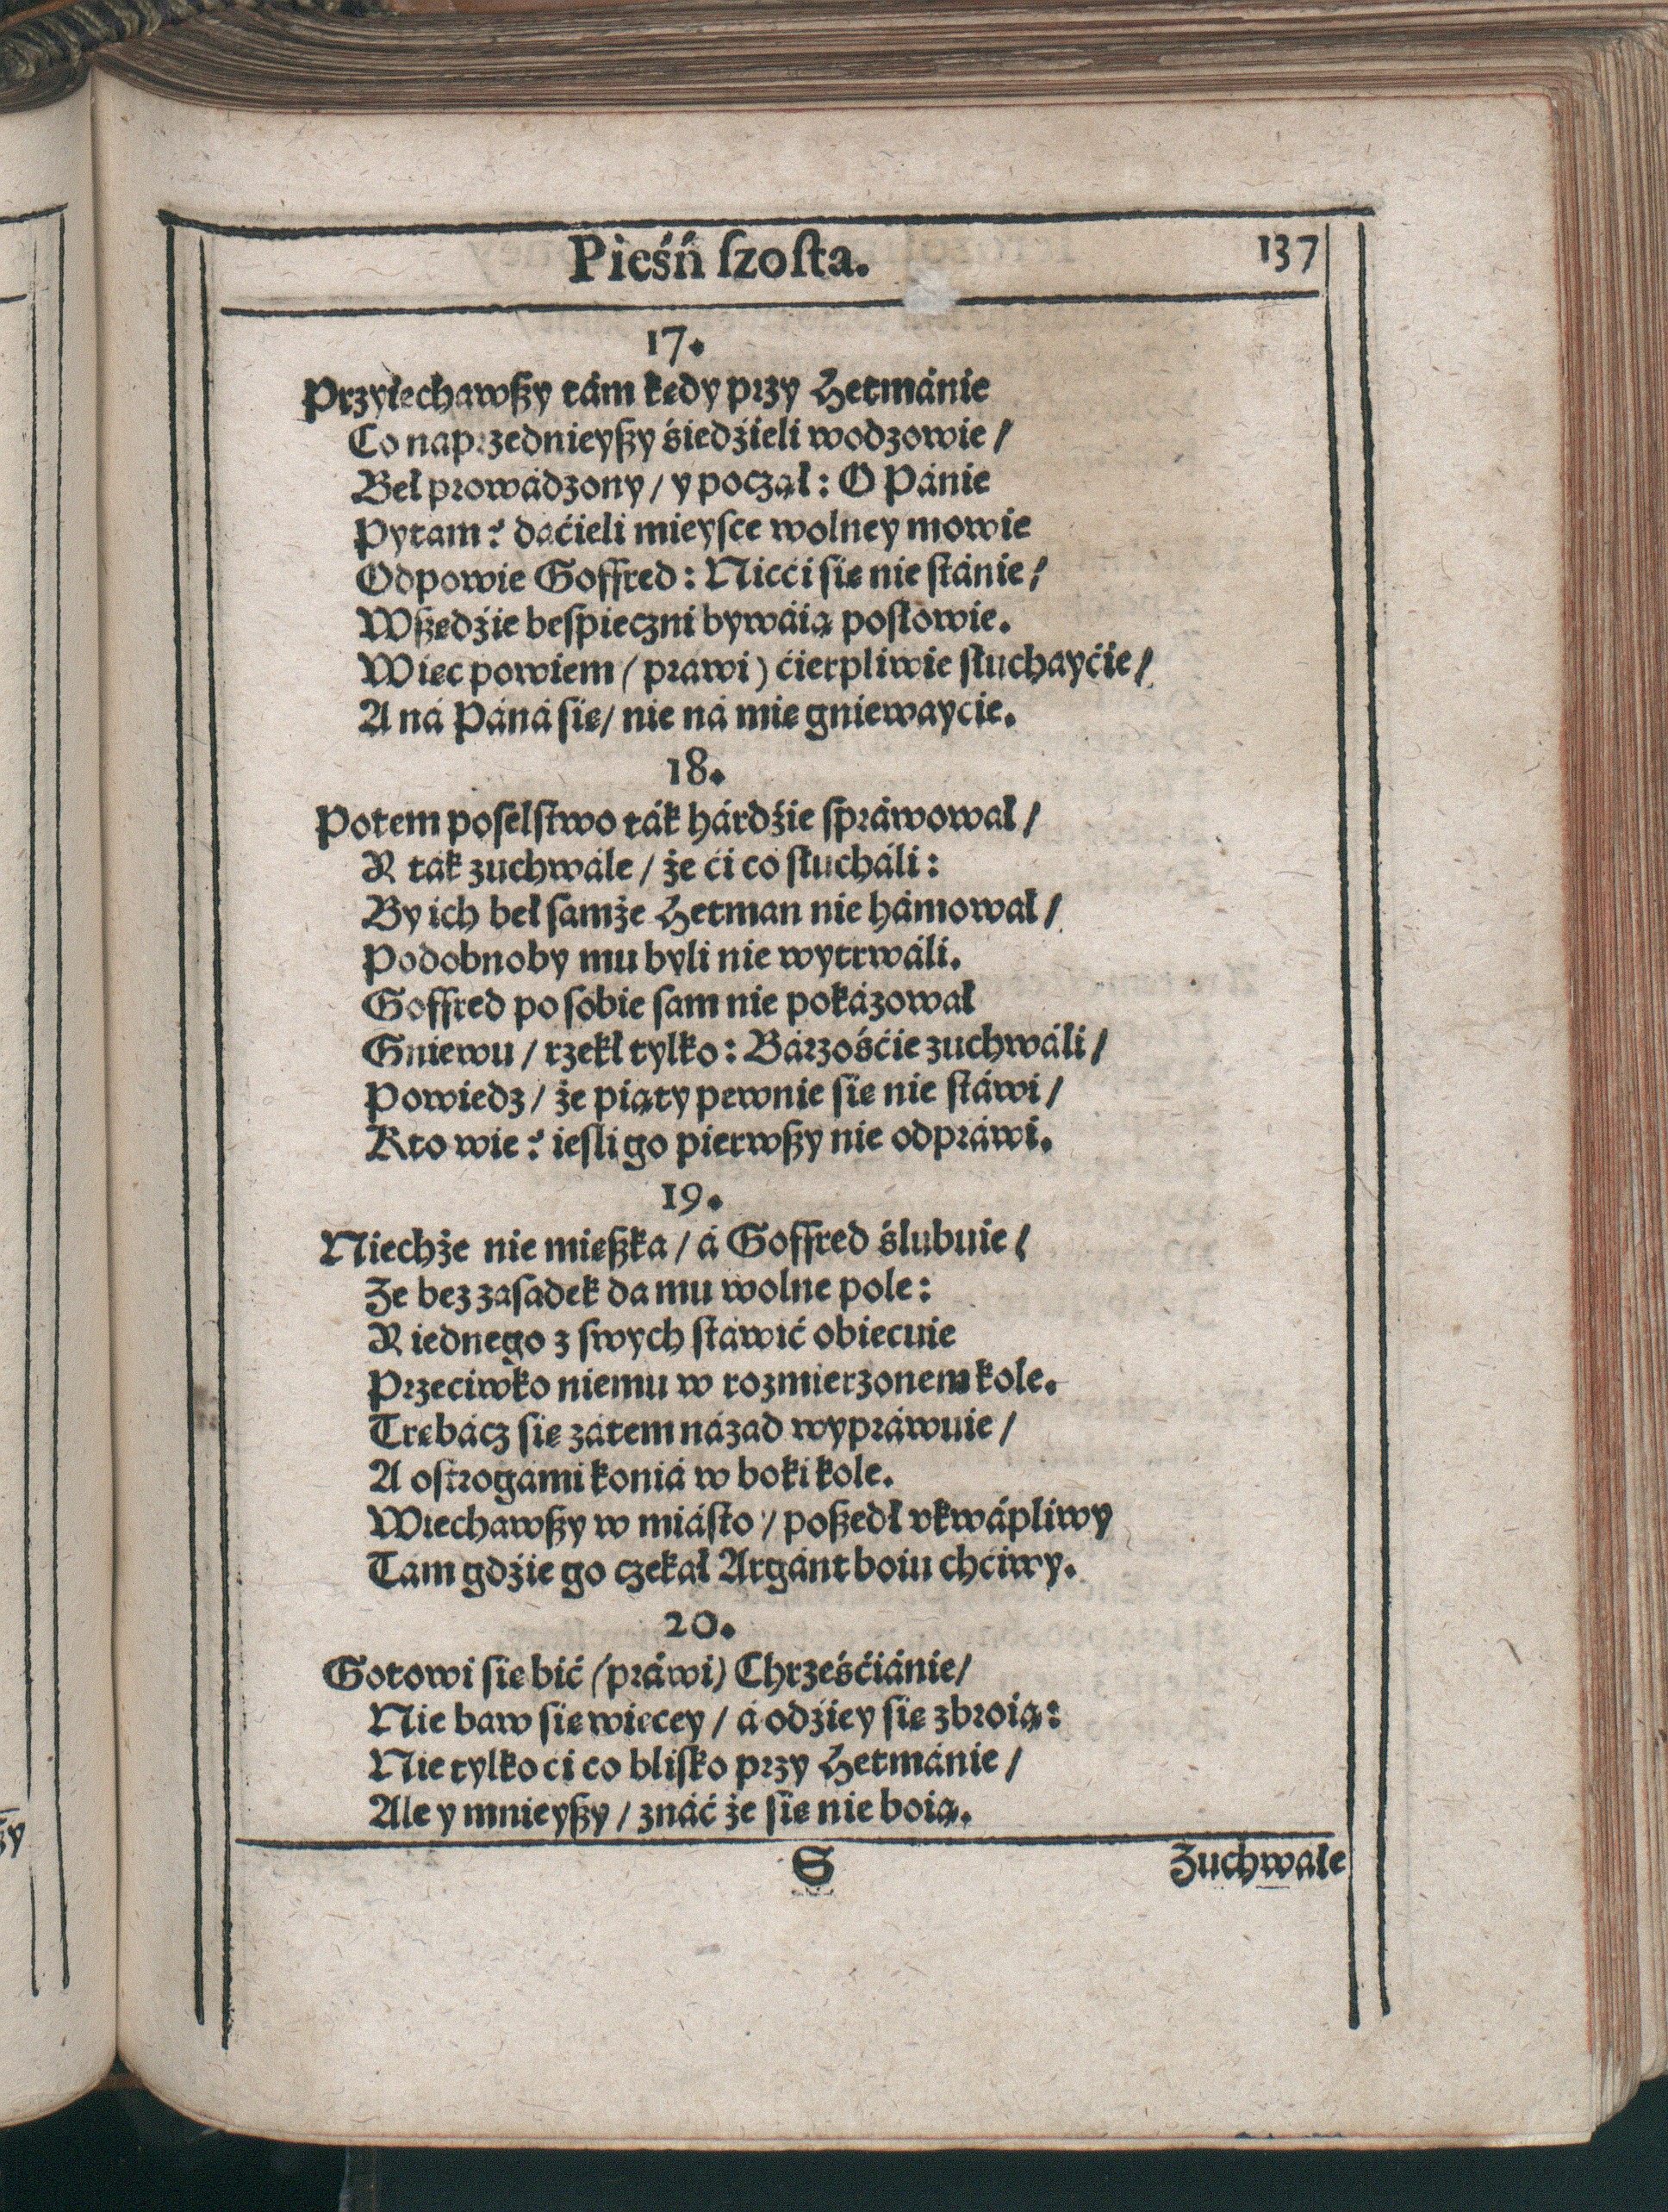 Pieśń ſzoſta. 137
17.
Przyiechawßy tám kędy przy Hetmánie
Co naprzednieyßy śiedźieli wodzowie /
Beł prowádzony / y począł : O Pánie
Pytam ? daćieli mieyſce wolney mowie
Odpowie Goffred : Nicći się nie stánie /
Wßędźie beſpieczni bywáią posłowie.
Więc powiem ( práwi ) ćierpliwie słuchayćie /
A ná Páná się / nie ná mię gniewaycie.
18.
Potem poſelſtwo ták hárdźie ſpráwował /
A ták zuchwále / że ći co słucháli :
By ich beł ſamże Hetman nie hámował /
Podobnoby mu byli nie wytrwáli.
Goffred po ſobie ſam nie pokázował
Gniewu / rzekł tylko : Bárzośćie zuchwáli /
Powiedz / że piąty pewnie się nie stáwi /
Kto wie ? ieſli go pierwßy nie odpráwi.
19.
Niechże nie mießka / á Goffred ślubuie /
Że bez zaſadek da mu wolne pole :
A iednego z ſwych stáwić obiecuie
Przeciwko niemu w rozmierzonem kole.
Trębácz się zátem názad wypráwuie /
A ostrogámi koniá w boki kole.
Wiechawßy w miásto / poßedł vkwápliwy
Tam gdźie go czekał Argánt boiu chćiwy.
20.
Gotowi się bić ( práwi ) Chrześćiánie /
Nie baw się więcey / á odźiey się zbroią :
Nie tylko ci co bliſko przy Hetmánie /
Ale y mnieyßy / znáć że się nie boią.
S Zuchwałe
ßy